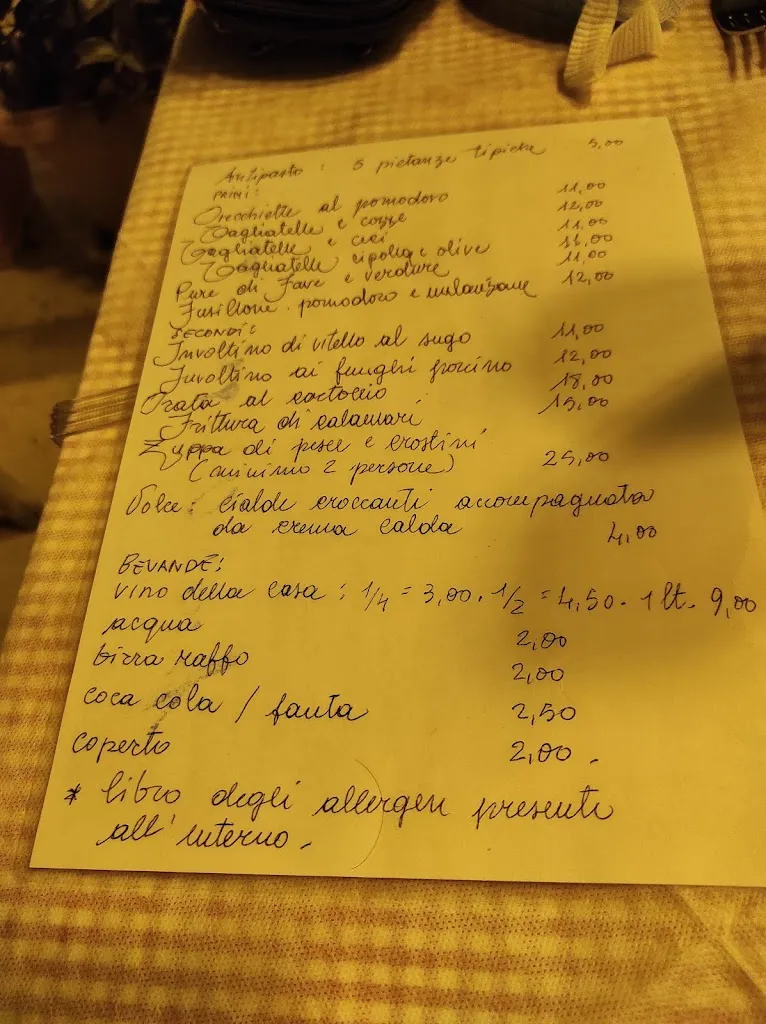 Antipasto : 5 pietanze tipiche 5,00
PRIMI:
Orecchiette al pomodoro 11,00
Tagliatelle e cozze 12,00
Tagliatelle e ceci 11,00
Tagliatelle cipolla e olive 11,00
Pure di fave e verdure 11,00
Fusillone pomodoro e melanzane 12,00
SECONDI:
Involtino di vitello al sugo 11,00
Involtino ai funghi porcino 12,00
Orata al cartoccio 18,00
Frittura di calamari 15,00
Zuppa di pesce e crostini
(minimo 2 persone) 25,00
Dolce : cialde croccanti accompagnata
da crema calda 4,00
BEVANDE:
vino della casa : 1/4 = 3,00 . 1/2 = 4,50 . 1 lt. 9,00
acqua 2,00
birra raffo 2,00
coca cola / fanta 2,50
coperto 2,00 .
* libro degli allergeni presente
all'interno .